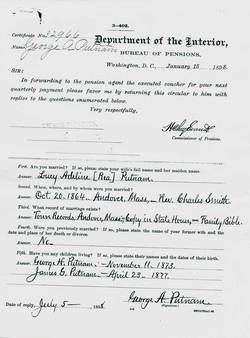 3-402.
Certificate No. 32964
Name, George A. Putnam
Department of the Interior,
BUREAU OF PENSIONS,
Washington, D. C., January 15, 1898.
SIR:
In forwarding to the pension agent the executed voucher for your next
quarterly payment please favor me by returning this circular to him with
replies to the questions enumerated below.
Very respectfully,
Commissioner of Pensions.
First. Are you married? If so, please state your wife's full name and her maiden name.
Answer. Lucy Adeline [Rea] Putnam.
Second. When, where, and by whom were you married?
Answer. Oct. 20, 1864. Andover, Mass., Rev. Charles Smith
Third. What record of marriage exists?
Answer. Town Records, Andover, Mass., Copy in State House, Family Bible.
Fourth. Were you previously married? If so, please state the name of your former wife and the
date and place of her death or divorce.
Answer. No.
Fifth. Have you any children living? If so, please state their names and the dates of their birth.
Answer. George H. Putnam. - November 11, 1873.
James G. Putnam - April 29, 1877.
Date of reply, July 5 - 1898
George A. Putnam